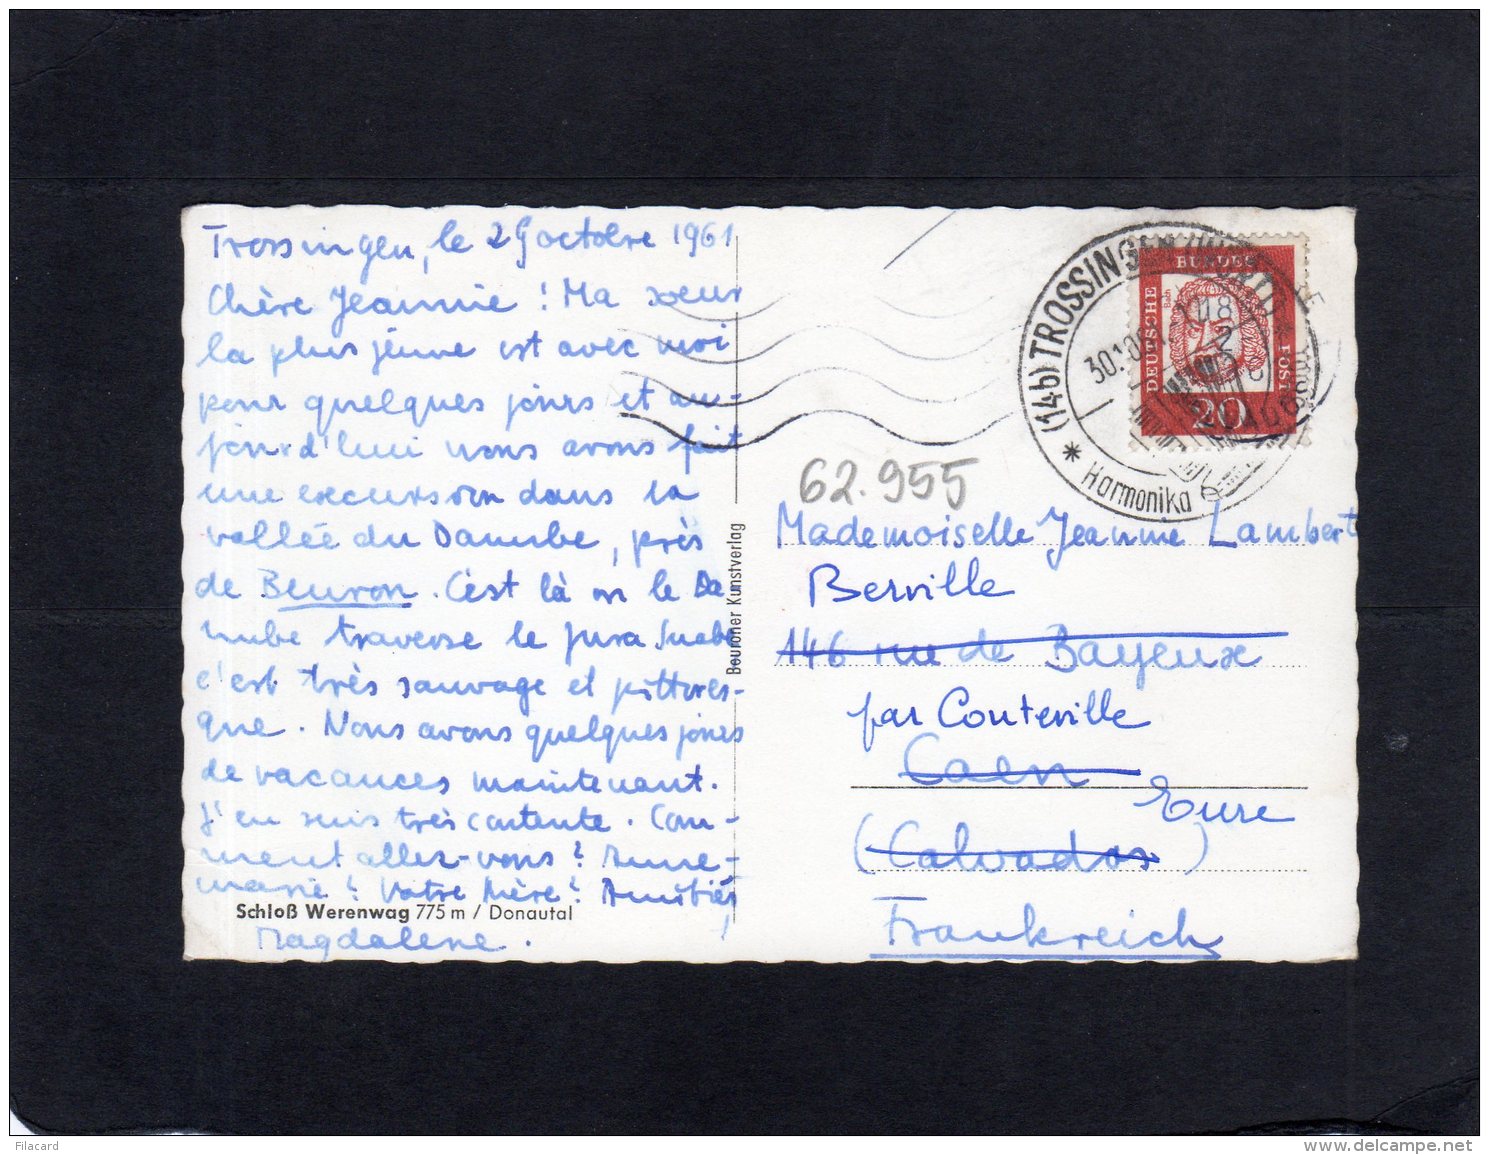 Trossingen, le 29 octobre 1961
Chère Jeannie ! Ma sœur
la plus jeune est avec moi
pour quelques jours et au-
jourd'hui nous avons fait
une excursion dans la
vallée du Danube, près
de Beuron. C'est là où le Da
nube traverse le Jura Suabe
c'est très sauvage et pittores-
que. Nous avons quelques jours
de vacances maintenant.
J'en suis très contente. Com-
ment allez-vous ? Anne-
marie ? Votre Mère ? Amitiés,
Schloß Werenwag 775 m / Donautal
Magdalene.
Beuroner Kunstverlag
(14b) TROSSINGEN (WÜRTT)
Harmonika
DEUTSCHE
BUNDES
POST
Bach
20
62.955
Mademoiselle Jeanne Lambert
Berville
146 rue de Bayeux
par Conteville
Caen
Eure
(Calvados)
Frankreich
Filacard
www.delcampe.net